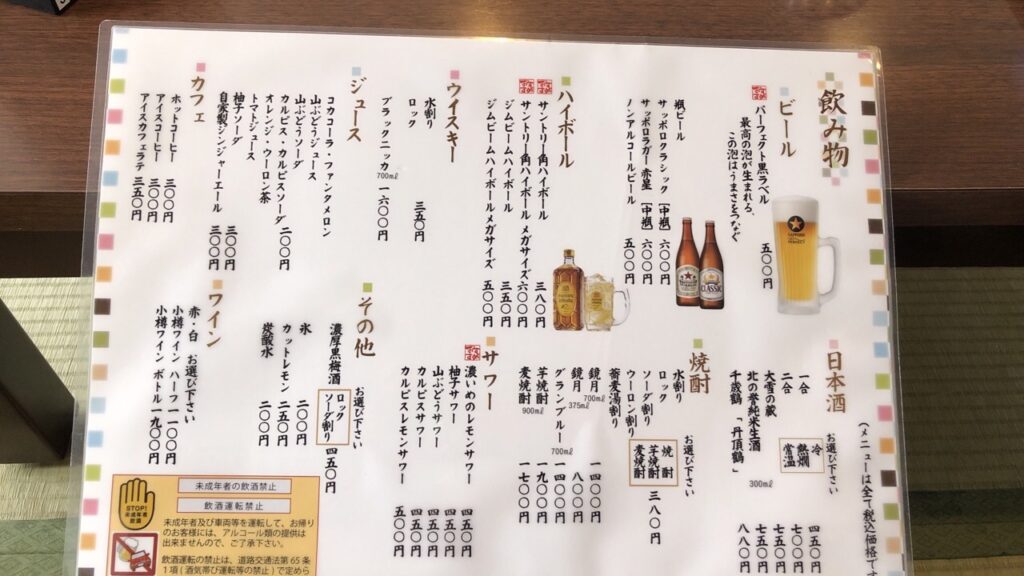 飲み物
ビール
パーフェクト黒ラベル 五〇〇円
最高の泡が生まれる、
この泡はうまさをつなぐ
瓶ビール
サッポロクラシック［中瓶］六〇〇円
サッポロラガー 赤星［中瓶］六〇〇円
ノンアルコールビール 五〇〇円
ハイボール
サントリー角ハイボール 三八〇円
サントリー角ハイボール メガサイズ 六〇〇円
ジムビームハイボール 三五〇円
ジムビームハイボール メガサイズ 五〇〇円
ウイスキー
水割り
ロック 三五〇円
ブラックニッカ 700㎖ 一六〇〇円
ジュース
コカコーラ・ファンタメロン
山ぶどうジュース
山ぶどうソーダ
カルピス・カルピスソーダ 二〇〇円
オレンジ・ウーロン茶
トマトジュース
柚子ソーダ 三〇〇円
自家製ジンジャーエール 三〇〇円
カフェ
ホットコーヒー 三〇〇円
アイスコーヒー 三〇〇円
アイスカフェラテ 三五〇円
日本酒
(メニューは全て税込価格です
お選び下さい
冷
熱燗
常温
一合 四五〇円
二合 七〇〇円
大雪の蔵 七五〇円
北の誉純米生酒 300㎖ 七五〇円
千歳鶴「丹頂鶴」 八八〇円
焼酎
お選び下さい
焼酎
芋焼酎
麦焼酎
水割り
ロック
ソーダ割り
ウーロン割り 三八〇円
蕎麦湯割り
鏡月 700㎖ 一四〇〇円
鏡月 375㎖ 八〇〇円
グランブルー 700㎖ 一四〇〇円
芋焼酎 一九〇〇円
麦焼酎 900㎖ 一七〇〇円
サワー
濃いめのレモンサワー 四五〇円
柚子サワー 四五〇円
山ぶどうサワー 四五〇円
カルピスサワー 四五〇円
カルピスレモンサワー 五〇〇円
その他
お選び下さい
濃厚黒梅酒
ロック
ソーダ割り
四五〇円
氷 二〇〇円
カットレモン 二五〇円
炭酸水 二〇〇円
ワイン
赤・白 お選び下さい
小樽ワイン ハーフ 一一〇〇円
小樽ワイン ボトル 一九〇〇円
STOP!
未成年者
飲酒
未成年者の飲酒禁止
飲酒運転の禁止
未成年者及び車両等を運転して、お帰り
のお客様には、アルコール類の提供は
出来ませんので、ご了承下さい。
飲酒運転の禁止は、道路交通法第65条
1項(酒気帯び運転等の禁止)で定めら